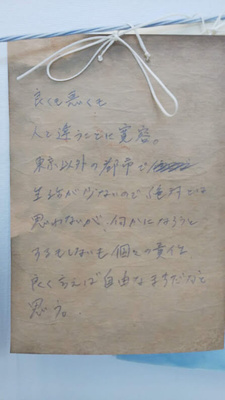 良くも悪くも
人と違うことに寛容。
東京以外の都市で
生活が少ないので絶対とは
思わないが、何かになろうと
するもしないも個々の責任
良く言えば自由なまちだなと
思う。